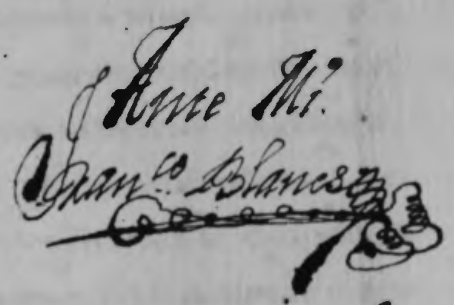 Ante Mi.
Fran.co Blanco